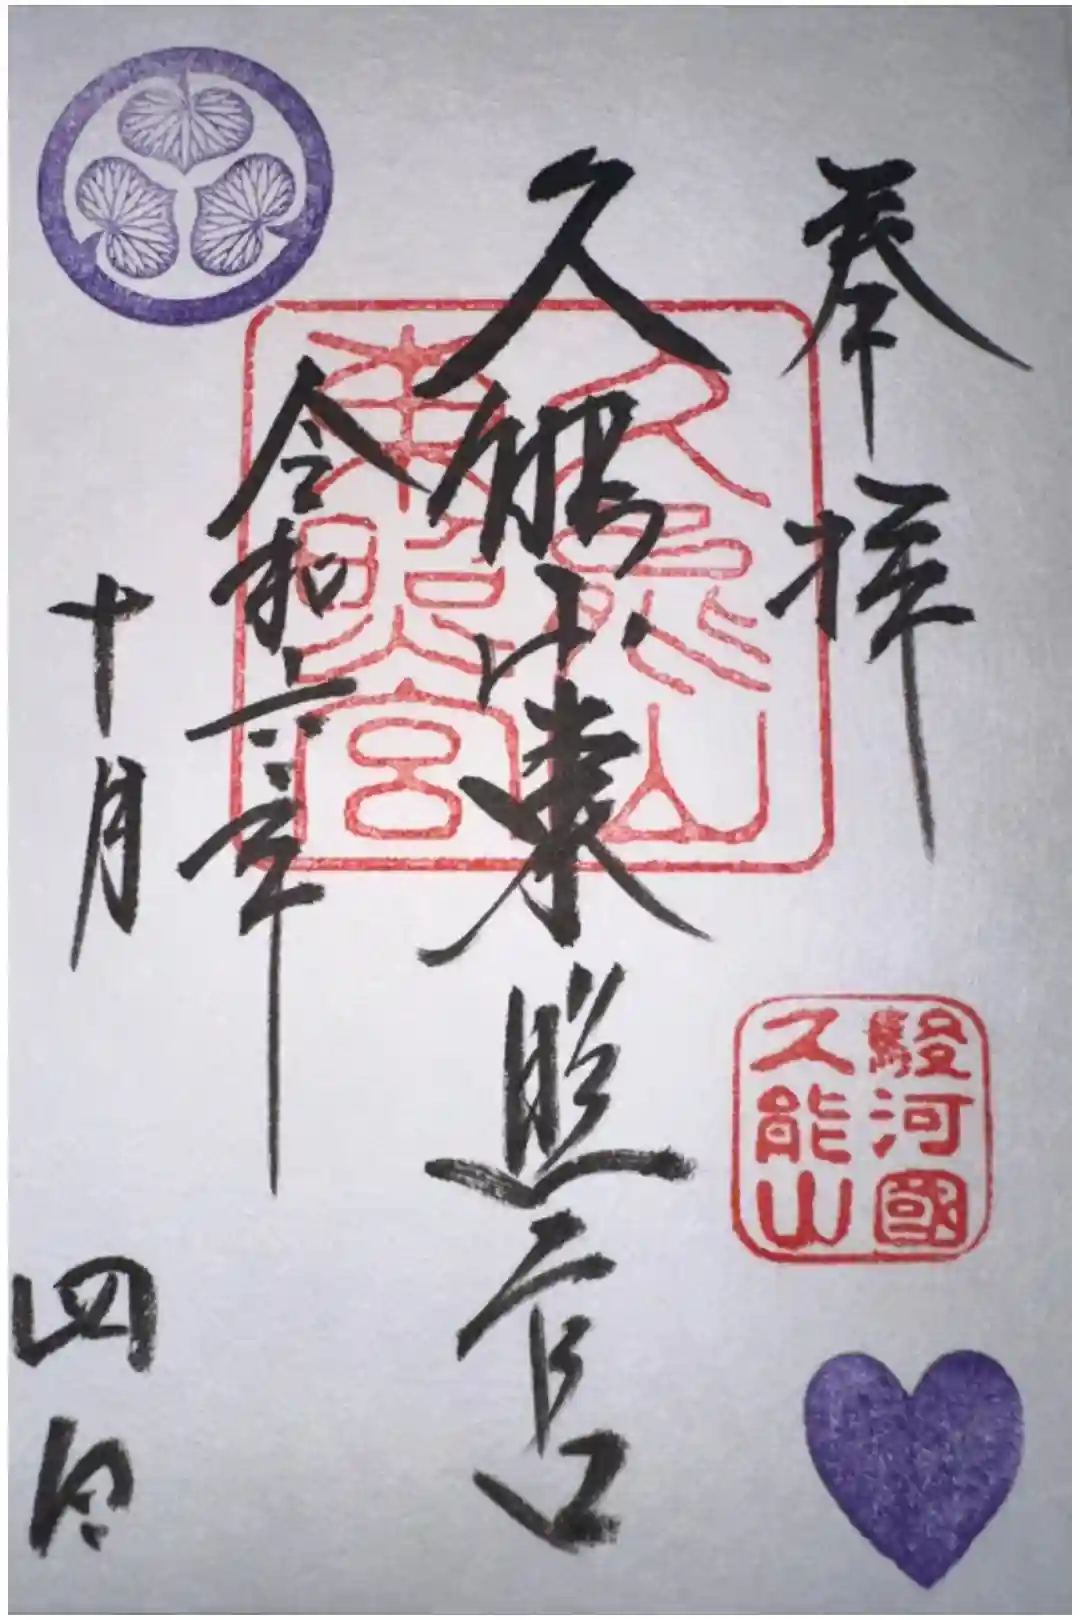 奉拝
駿河國
久能山
久能山東照宮
久能山
東照宮
令和六年
十月
四日